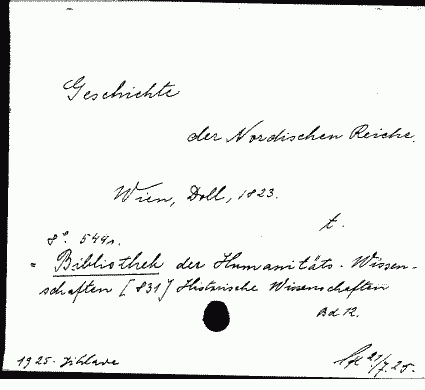 Geschichte
der Nordischen Reiche.
Wien, Doll, 1823.
t.
8°. 544s.
= Bibliothek der Humanitäts-Wissen-
schaften [831] Historische Wissenschaften
Bd 12.
1925. Jihlava
21/7.25.